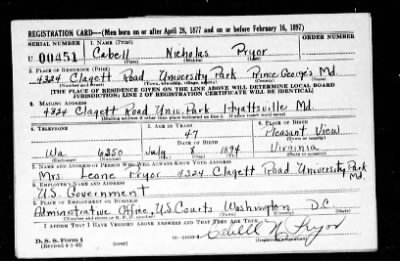 REGISTRATION CARD—(Men born on or after April 28, 1877 and on or before February 16, 1897)
SERIAL NUMBER 1. NAME (Print) ORDER NUMBER
U 00451 Cabell Nicholas Pryor
(First) (Middle) (Last)
2. PLACE OF RESIDENCE (Print)
4324 Clagett Road University Park Prince George's Md.
(Number and street) (Town, township, village, or city) (County) (State)
[THE PLACE OF RESIDENCE GIVEN ON THE LINE ABOVE WILL DETERMINE LOCAL BOARD
JURISDICTION; LINE 2 OF REGISTRATION CERTIFICATE WILL BE IDENTICAL]
3. MAILING ADDRESS
4324 Clagett Road Univ. Park Hyattsville Md.
(Mailing address if other than place indicated on line 2. If same insert word same)
4. TELEPHONE 5. AGE IN YEARS 6. PLACE OF BIRTH
47 Pleasant View
DATE OF BIRTH (Town or county)
Wa 6250 July 8 1894 Virginia
(Exchange) (Number) (Mo.) (Day) (Yr.) (State or country)
7. NAME AND ADDRESS OF PERSON WHO WILL ALWAYS KNOW YOUR ADDRESS
Mrs. Leone Pryor 4324 Clagett Road University Park Md.
8. EMPLOYER'S NAME AND ADDRESS
U.S. Government
9. PLACE OF EMPLOYMENT OR BUSINESS
Administrative Office, U.S. Courts Washington D.C.
(Number and street or R. F. D. number) (Town) (County) (State)
I AFFIRM THAT I HAVE VERIFIED ABOVE ANSWERS AND THAT THEY ARE TRUE.
D. S. S. Form 1
(Revised 4-1-42) Cabell N. Pryor
(Registrant's signature)